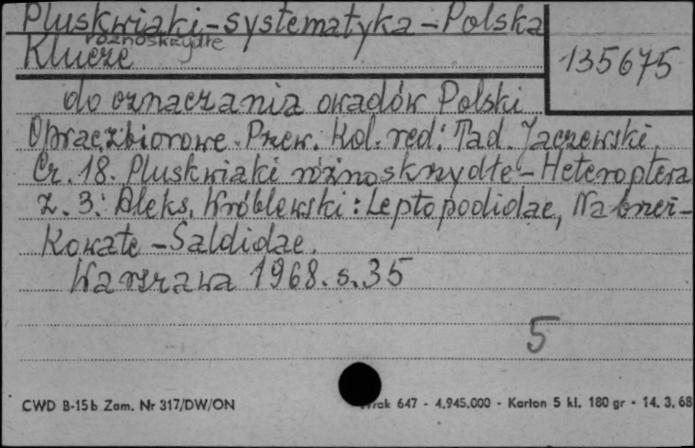 Pluskwiaki - systematyka - Polska
różnoskrzydłe
Klucze
135675
do oznaczania owadów Polski
Oprac. zbiorowe. Przew. Kol. red: Tad. Jaczewski.
Cz. 18. Pluskwiaki różnoskrzydłe - Heteroptera
z. 3: Aleks. Wróblewski: Leptopodidae, Nabrzeż-
kowate - Saldidae.
Warszawa 1968. s. 35
5
CWD B-15b Zam. Nr 317/DW/ON
647 - 4.945.000 - Karton 5 kl. 180 gr - 14. 3. 68